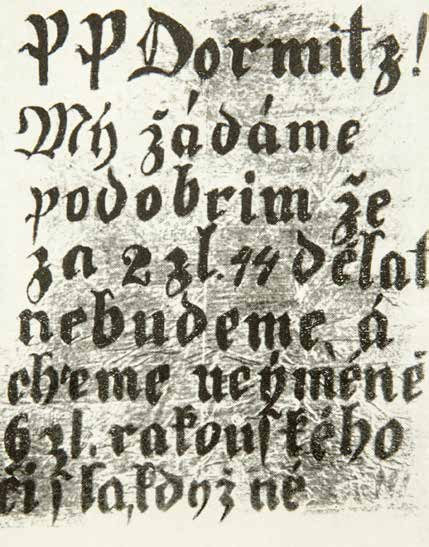 PP Dormitz!
Mý žádáme
podobrim že
za 2 zl. 44 dělat
nebudeme, á
chceme neýméně
6 zl. rakouského
čisla, když né